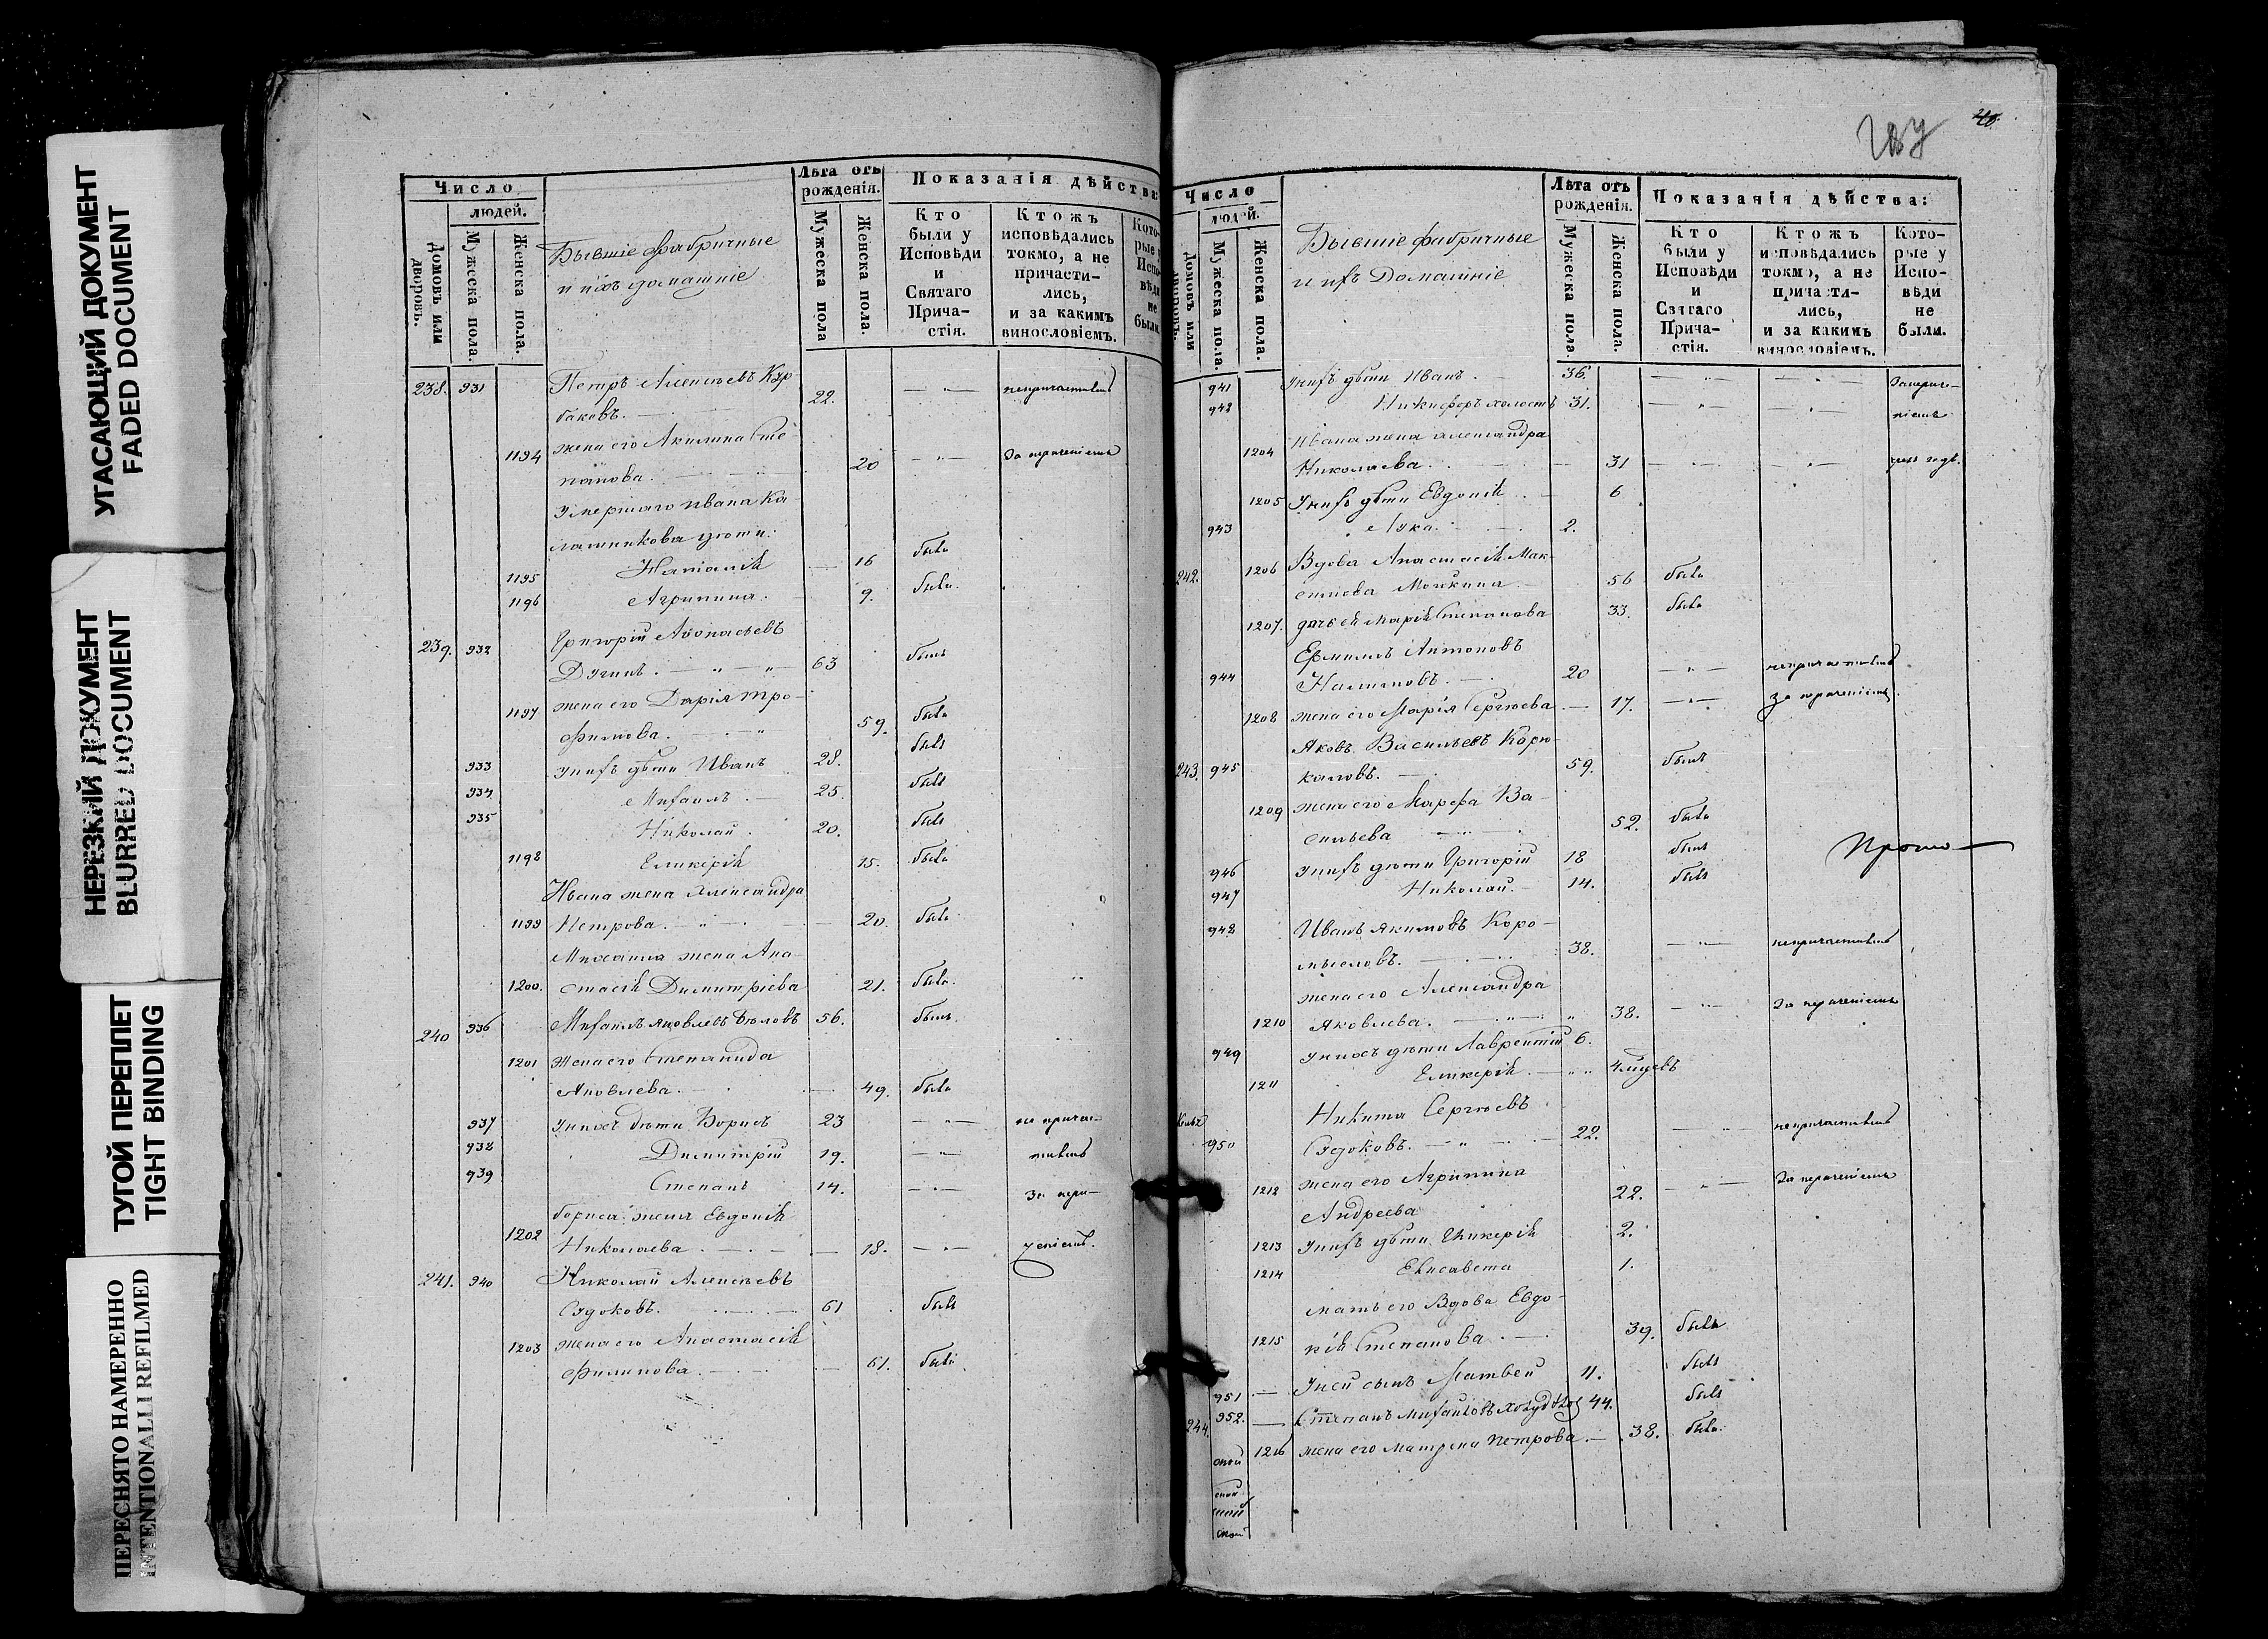 УГАСАЮЩИЙ ДОКУМЕНТ
FADED DOCUMENT
НЕРЕЗКИЙ ДОКУМЕНТ
BLURRED DOCUMENT
ТУГОЙ ПЕРЕПЛЕТ
TIGHT BINDING
ПЕРЕСНЯТО НАМЕРЕННО
INTENTIONALLI REFILMED
Число
людей.
Домовъ или дворовъ.
Мужеска пола.
Женска пола.
Бывшіе фабричные
и ихъ домашніе
Лѣта отъ рожденія.
Мужеска пола
Женска пола.
Показанія дѣйства:
Кто были у Исповѣди и Святаго Прича-стія.
Ктожъ исповѣдались токмо, а не причасти-лись, и за какимъ винословіемъ.
Кото-рые у Испо-вѣди не были.
238. 931 Петръ Алексѣевъ Кур-
баковъ. 22. непричастивъ
1194 жена его Акилина Сте-
панова. 20 За терпеніемъ
умершаго Ивана Ка-
лашникова дѣти:
1195 Наталія 16 была
1196 Агрипина. 9. была
239. 932 Григорій Аѳонасьевъ
Дугинъ. 63 былъ
1197 жена его Дарія Тро-
фимова. 59. была
933 у нихъ дѣти Иванъ 28. былъ
934 Михаилъ. 25. былъ
935 Николай. 20. былъ
1198 Гликерія 15. была
Ивана жена Александра
1199 Петрова. 20. была
Михаила жена Ана-
1200. стасія Димитріева 21. была
240 936 Михаилъ Яковлевъ Бѣловъ 56. былъ.
1201 Жена его Степанида
Яковлева. 49. была
937 у нихъ дѣти Борисъ 23 не причас-
938 Димитрій 19. тивъ
939 Степанъ 14.
бориса жена Евдокія
1202 Николаева. 18.
241. 940 Николай Алексѣевъ
Судоковъ. 61 былъ
1203 жена его Анастасія
Филипова. 61. была
Число
людей.
Домовъ или дворовъ.
Мужеска пола.
Женска пола.
Бывшіе фабричные
и ихъ Домашніе
Лѣта отъ рожденія.
Мужеска пола.
Женска пола.
Показанія дѣйства:
Кто были у Исповѣди и Святаго Прича-стія.
Ктожъ исповѣдались токмо, а не причасти-лись, и за какимъ винословіемъ.
Кото-рые у Испо-вѣди не были.
941 у нихъ дѣти Иванъ 36.
942 Никифоръ холостъ 31.
Ивана жена Александра
1204 Николаева. 31
1205 у нихъ дѣти Евдокія 6
943 Лука. 2.
242. 1206 Вдова Анастасія Мак-
симова 56 была
1207. дочь ея Марія Степанова 33. была
Ермилъ Антоновъ
944 Налимовъ. 20 непричастивъ
1208 жена его Марія Сергѣева 17.
Яковъ Васильевъ Карю-
243. 945 каловъ. 59. былъ
1209 жена его Марфа Ва-
сильева 52. была
946 у нихъ дѣти Григорій 18 былъ
947 Николай. 14. былъ
948 Иванъ Якимовъ Коро-
мысловъ. 38. непричастивъ
жена его Александра
1210 Яковлева. 38.
949 у нихъ дѣти Лаврентій 6.
1211 Гликерія.
Никита Сергѣевъ
950 Судоковъ. 22. непричастивъ
1212 жена его Агрипина
Андреева 22.
1213 у нихъ дѣти Гликерія 2.
1214 Елисавета 1.
мать его Вдова Евдо-
1215 кія Степанова. 39. была
951 у неи сынъ Матвей 11. былъ
244. 952. Степанъ Михаиловъ 44. былъ
1216 жена его Матрена Петрова. 38. была.